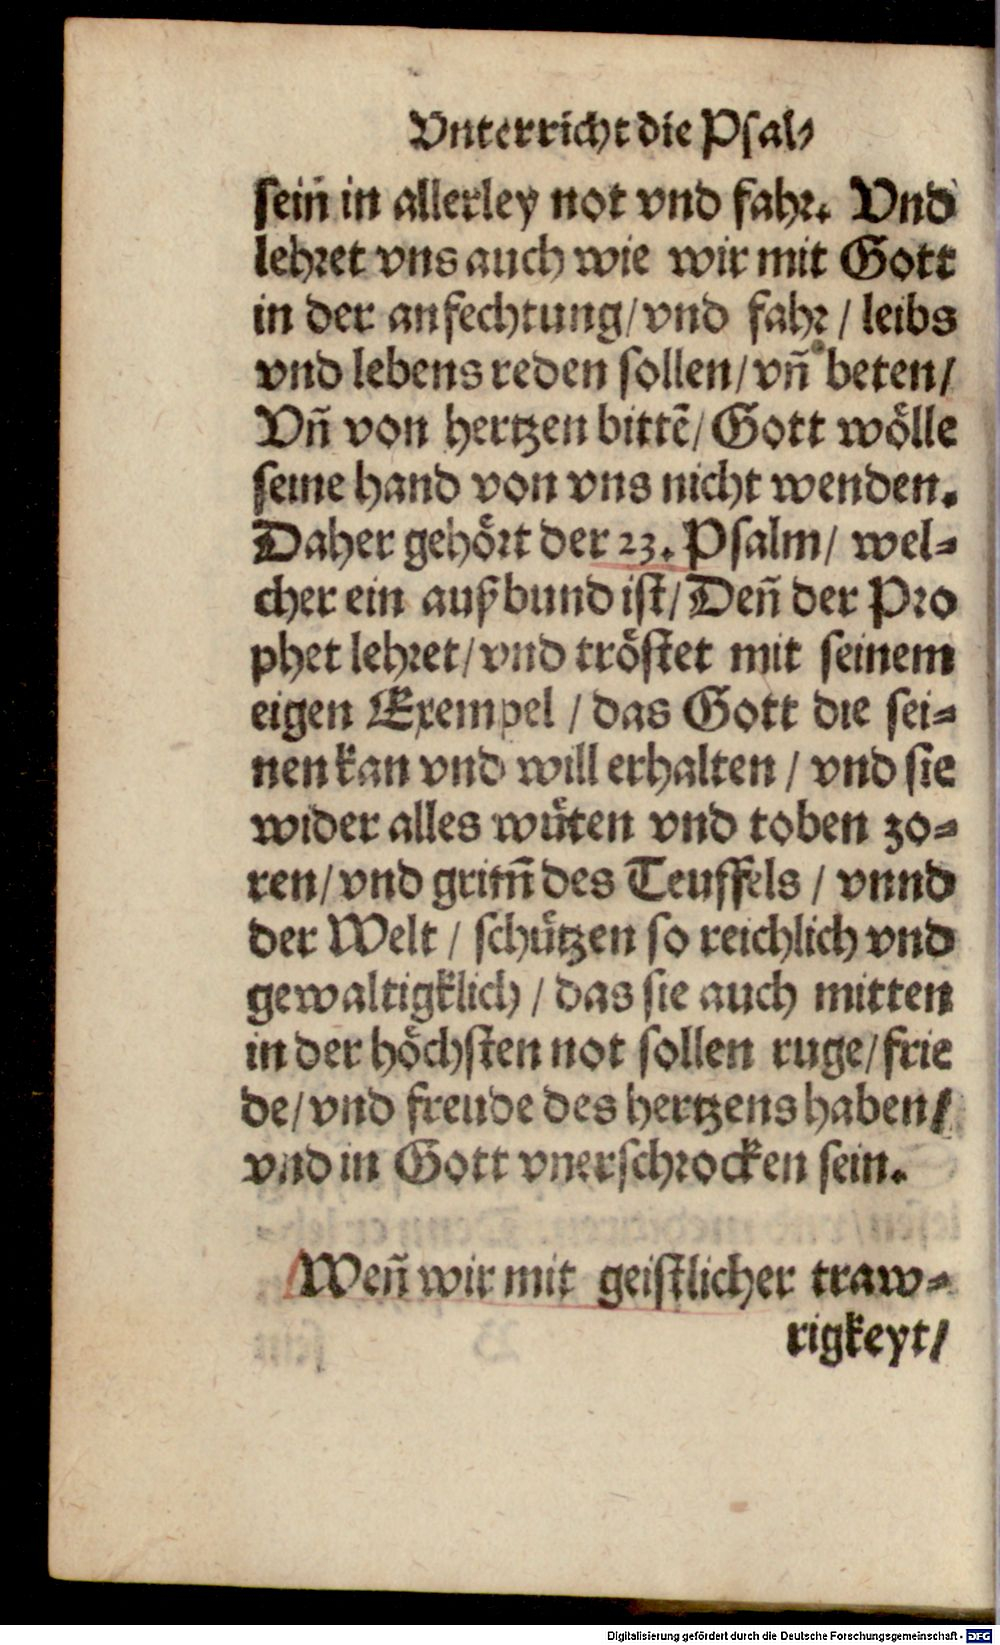 Vnterricht die Psal-
sein̄ in allerley not vnd fahr. Vnd
lehret vns auch wie wir mit Gott
in der anfechtung/vnd fahr / leibs
vnd lebens reden sollen/vn̄ beten/
Vn̄ von hertzen bittē/Gott wölle
seine hand von vns nicht wenden.
Daher gehört der 23. Psalm/ wel-
cher ein außbund ist/Den̄ der Pro
phet lehret/vnd tröstet mit seinem
eigen Exempel / das Gott die sei-
nen kan vnd will erhalten / vnd sie
wider alles wüten vnd toben zo-
ren/vnd grim̄ des Teuffels / vnnd
der Welt / schützen so reichlich vnd
gewaltigklich / das sie auch mitten
in der höchsten not sollen ruge/frie
de/vnd freude des hertzens haben/
vnd in Gott vnerschrocken sein.
Wen̄ wir mit geistlicher traw-
rigkeyt/
Digitalisierung gefördert durch die Deutsche Forschungsgemeinschaft - DFG